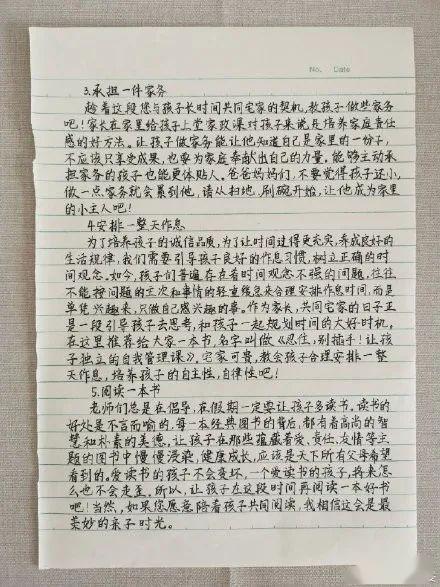 No. Date
3.承担一件家务
趁着这段您与孩子长时间共同宅家的契机,教孩子做些家务
吧!家长在家里给孩子上堂家政课对孩子来说是培养家庭责任
感的好方法。让孩子做家务能让他知道自己是家里的一份子,
不应该只享受成果,也要为家庭奉献出自己的力量,能够主动承
担家务的孩子也能更体贴人。爸爸妈妈们,不要觉得孩子还小,
做一点家务就会累到他,请从扫地、刷碗开始,让他成为家里
的小主人吧!
4.安排一整天作息
为了培养孩子的诚信品质,为了让时间过得更充实,养成良好的
生活规律,我们需要引导孩子良好的作息习惯,树立正确的时
间观念。如今,孩子们普遍存在着时间观念不强的问题,往往
不能按问题的主次和事情的轻重缓急来合理安排作息时间,而是
单凭兴趣来,只做自己感兴趣的事。作为家长,共同宅家的日子正
是一段引导孩子去思考,和孩子一起规划时间的大好时机。
在这里推荐给大家一本书,名字叫做《忍住,别插手!让孩
子独立的自我管理课》。宅家可贵,教会孩子合理安排一整
天作息,培养孩子的自主性,自律性吧!
5.阅读一本书
老师们总是在倡导,在假期一定要让孩子多读书。读书的
好处是不言而喻的,每一本经典图书的背后,都有着高尚的智
慧和朴素的美德,让孩子在那些蕴藏着爱、责任、友情等主
题的图书中慢慢浸染,健康成长,应该是天下所有父母希望
看到的。爱读书的孩子不会变坏,一个爱读书的孩子,将来怎
么也不会走歪。所以,让孩子在这段时间再阅读一本好书
吧!当然,如果您愿意陪着孩子共同阅读,我相信这会是最
美妙的亲子时光。